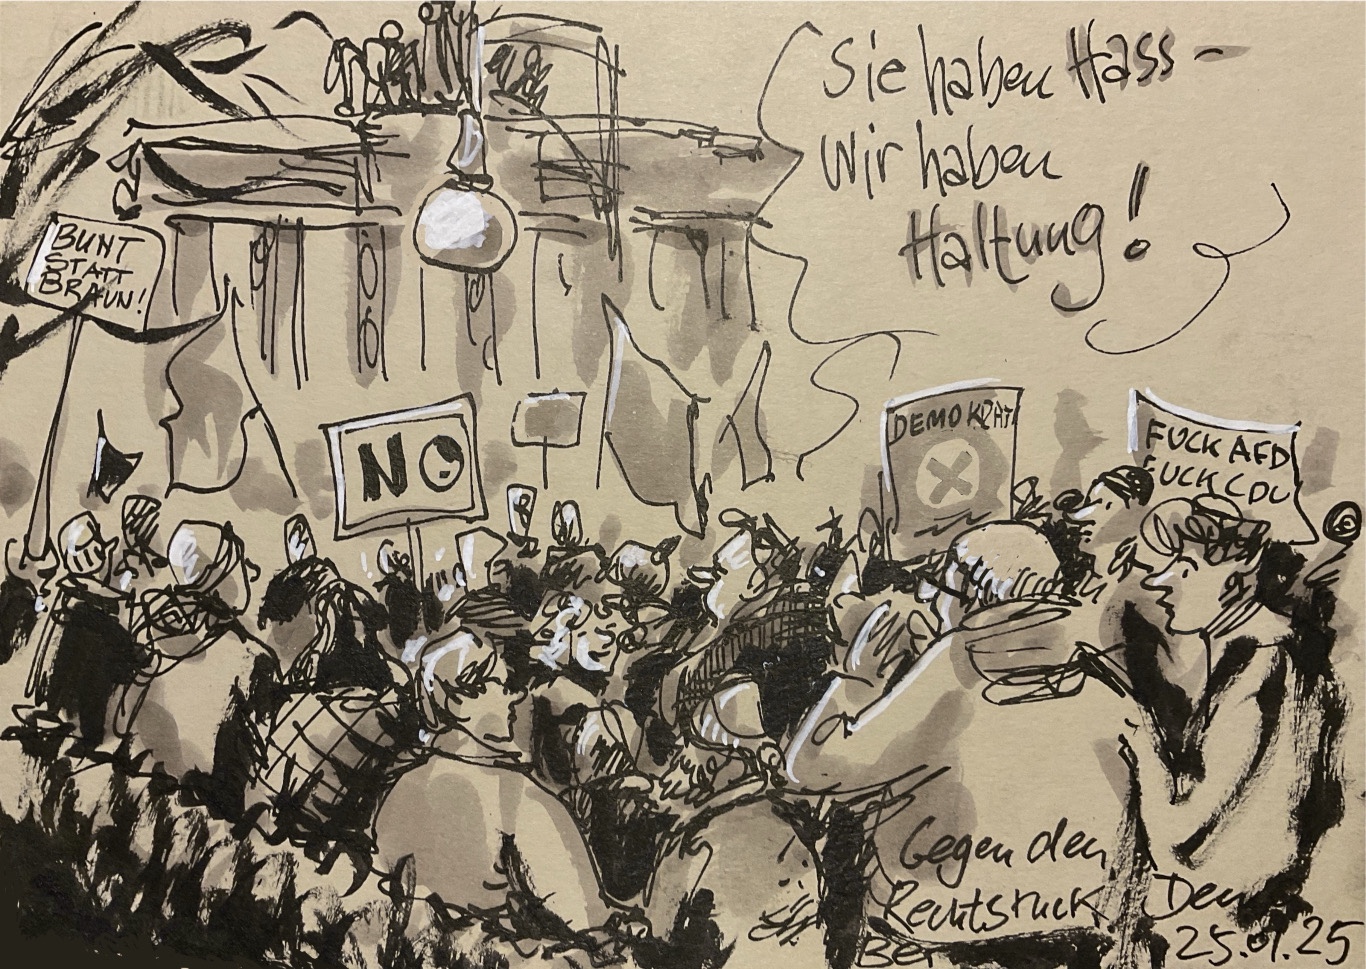 Sie haben Hass –
Wir haben
Haltung!
BUNT
STATT
BRAUN!
NO
DEMOKRATI
FUCK AFD
FUCK CDU
Gegen den
Rechtsruck Demo
Ber
25.01.25